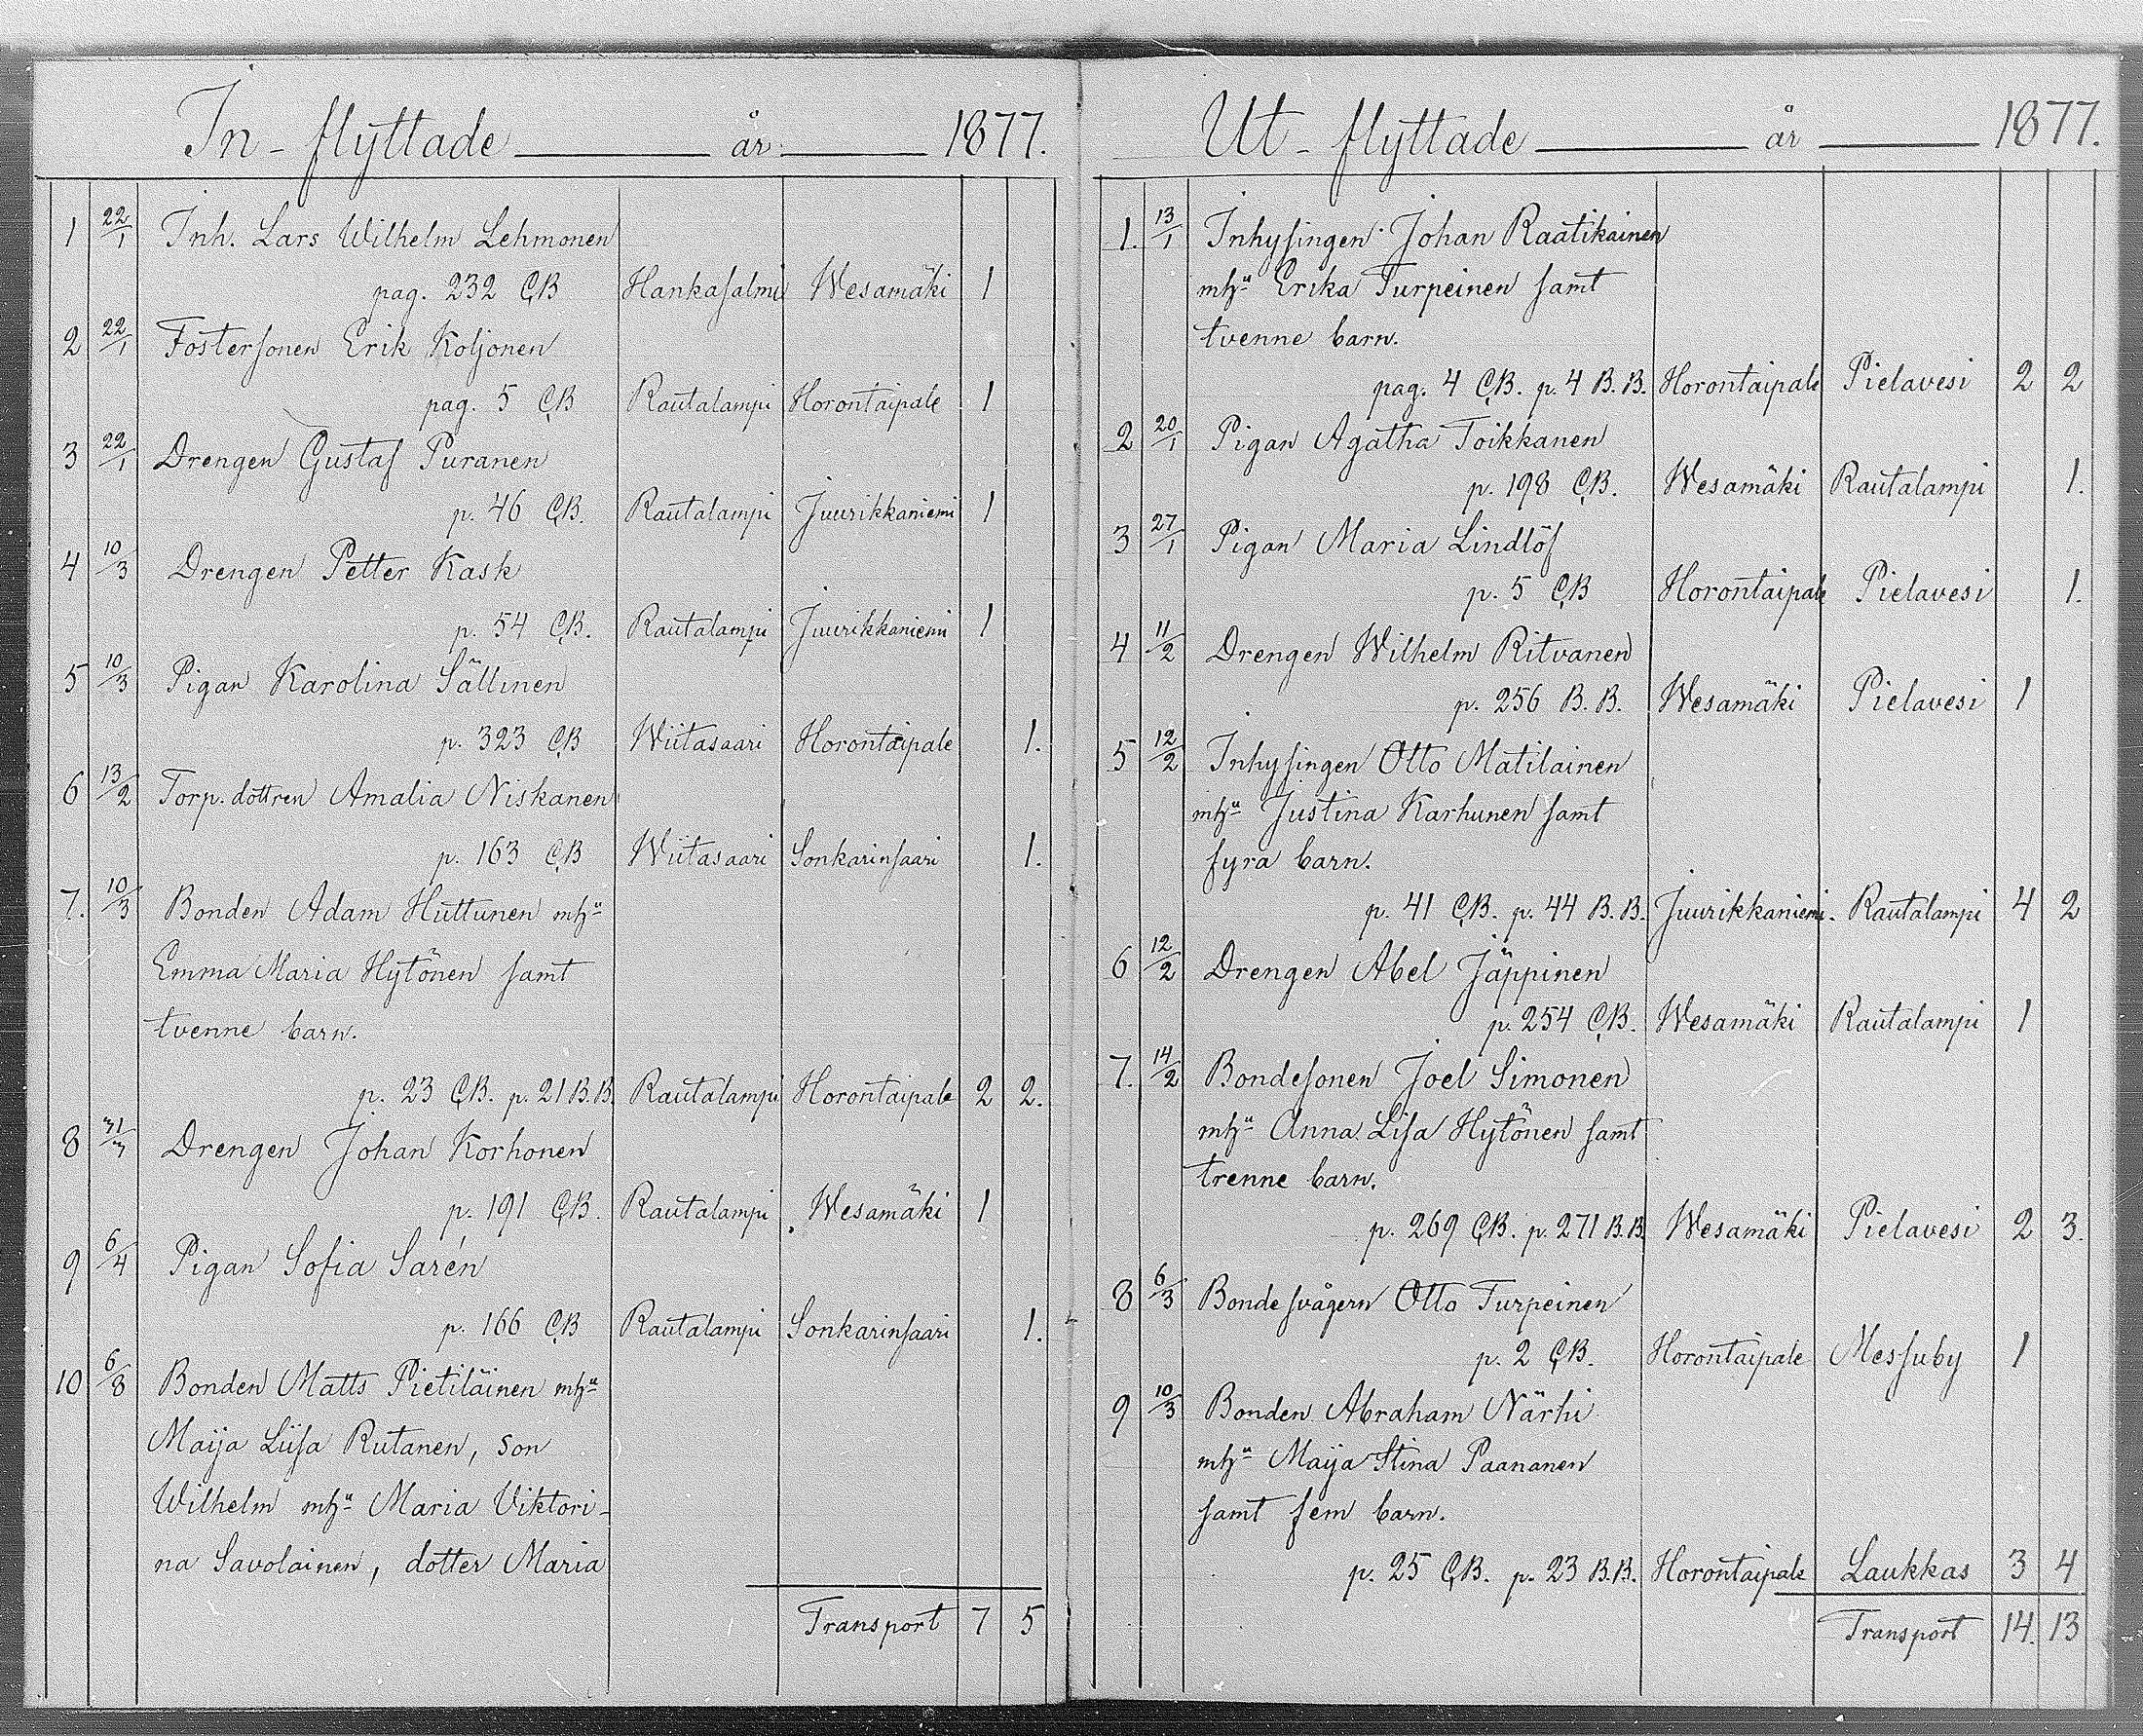 In-flyttade år 1877.
1 22/1 Inh. Lars Wilhelm Lehmonen
pag. 232 C,B Hankasalmi Wesamäki 1
2 22/1 Fostersonen Erik Koljonen
pag. 5 C,B Rautalampi Horontaipale 1
3 22/1 Drengen Gustaf Puranen
p. 46 C,B. Rautalampi Juurikkaniemi 1
4 10/3 Drengen Petter Kask
p. 54 C,B. Rautalampi Juurikkaniemi 1
5 10/3 Pigan Karolina Sällinen
p. 323 C,B Wiitasaari Horontaipale 1.
6 13/2 Torp. dottren Amalia Niskanen
p. 163 C,B Wiitasaari Sonkarinsaari 1.
7. 10/3 Bonden Adam Huttunen mhu
Emma Maria Hytönen samt
tvenne barn.
p. 23 C,B. p. 21 B.B. Rautalampi Horontaipale 2 2.
8 31/3 Drengen Johan Korhonen
p. 191 C,B. Rautalampi Wesamäki 1
9 6/4 Pigan Sofia Sarén
p. 166 C,B Rautalampi Sonkarinsaari 1.
10 6/8 Bonden Matts Pietiläinen mhu
Maija Liisa Rutanen, son
Wilhelm mhu Maria Viktori-
na Savolainen, dotter Maria
Transport 7 5
Ut-flyttade år 1877.
1. 13/1 Inhysingen Johan Raatikainen
mhu Erika Turpeinen samt
tvenne barn.
pag. 4 C,B. p. 4 B.B. Horontaipale Pielavesi 2 2
2 20/1 Pigan Agatha Toikkanen
p. 198 C,B. Wesamäki Rautalampi 1.
3 27/1 Pigan Maria Lindlöf
p. 5 C,B Horontaipale Pielavesi 1.
4 11/2 Drengen Wilhelm Ritvanen
p. 256 B.B. Wesamäki Pielavesi 1
5 12/2 Inhysingen Otto Matilainen
mhu Justina Karhunen samt
fyra barn.
p. 41 C,B. p. 44 B.B. Juurikkaniemi. Rautalampi 4 2
6 12/2 Drengen Abel Jäppinen
p. 254 C,B. Wesamäki Rautalampi 1
7. 14/2 Bondesonen Joel Simonen
mhu Anna Lisa Hytönen samt
trenne barn.
p. 269 C,B. p. 271 B.B. Wesamäki Pielavesi 2 3.
8 6/3 Bondesvågern Otto Turpeinen
p. 2 C,B. Horontaipale Messuby 1
9 10/3 Bonden Abraham Närhi
mhu Maija Stina Paananen
samt fem barn.
p. 25 C,B. p. 23 B.B. Horontaipale Laukkas 3 4
Transport 14. 13